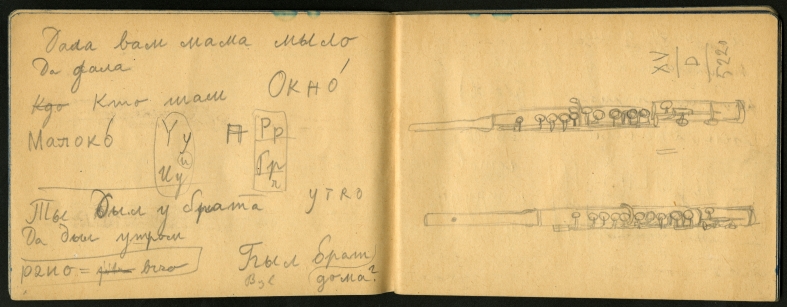 Дала вам мама мыло
Да дала
Кто там
Окно́
Малоко́
Уу
Рр
Ты был у брата
утко
Да был утром
рано =
Был брат
дома?
XV
D
5220